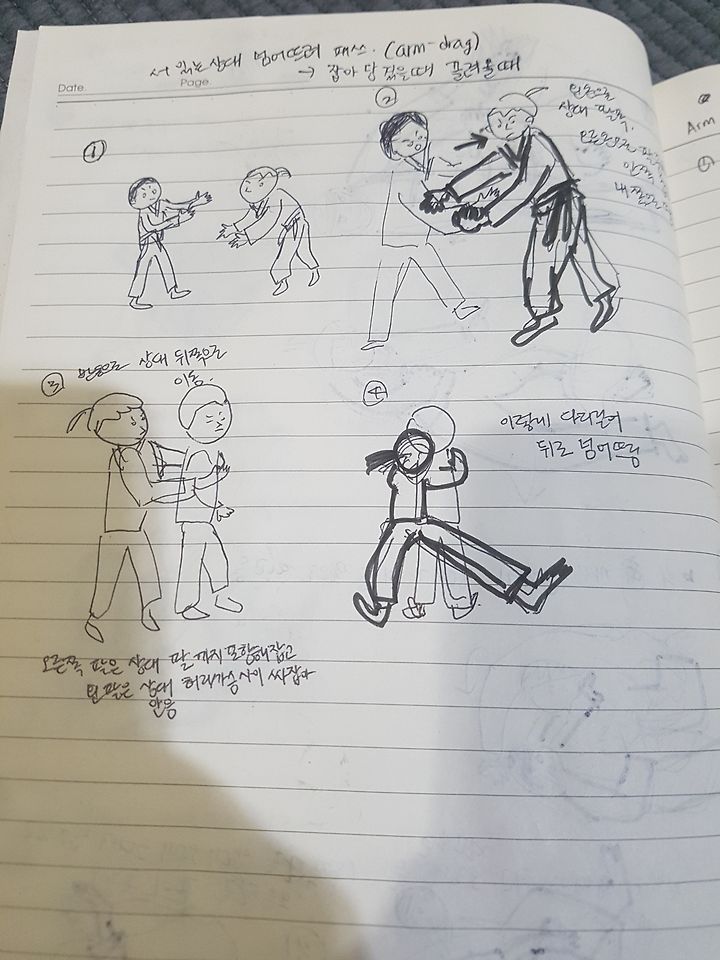 서 있는 상대 넘어뜨려 패쓰. (arm-drag)
→ 잡아 당겼을때 끌려올때
Date. Page.
①
②
왼손으로
상대 팔목,
오른손으로
안쪽
내 쪽으로
③ 반동으로 상대 뒤쪽으로
이동.
④
이렇게 다리넣어
뒤로 넘어뜨림
오른쪽 팔은 상대 팔까지 포함해잡고
왼팔은 상대 허리가슴사이 싸잡아
안음
Arm